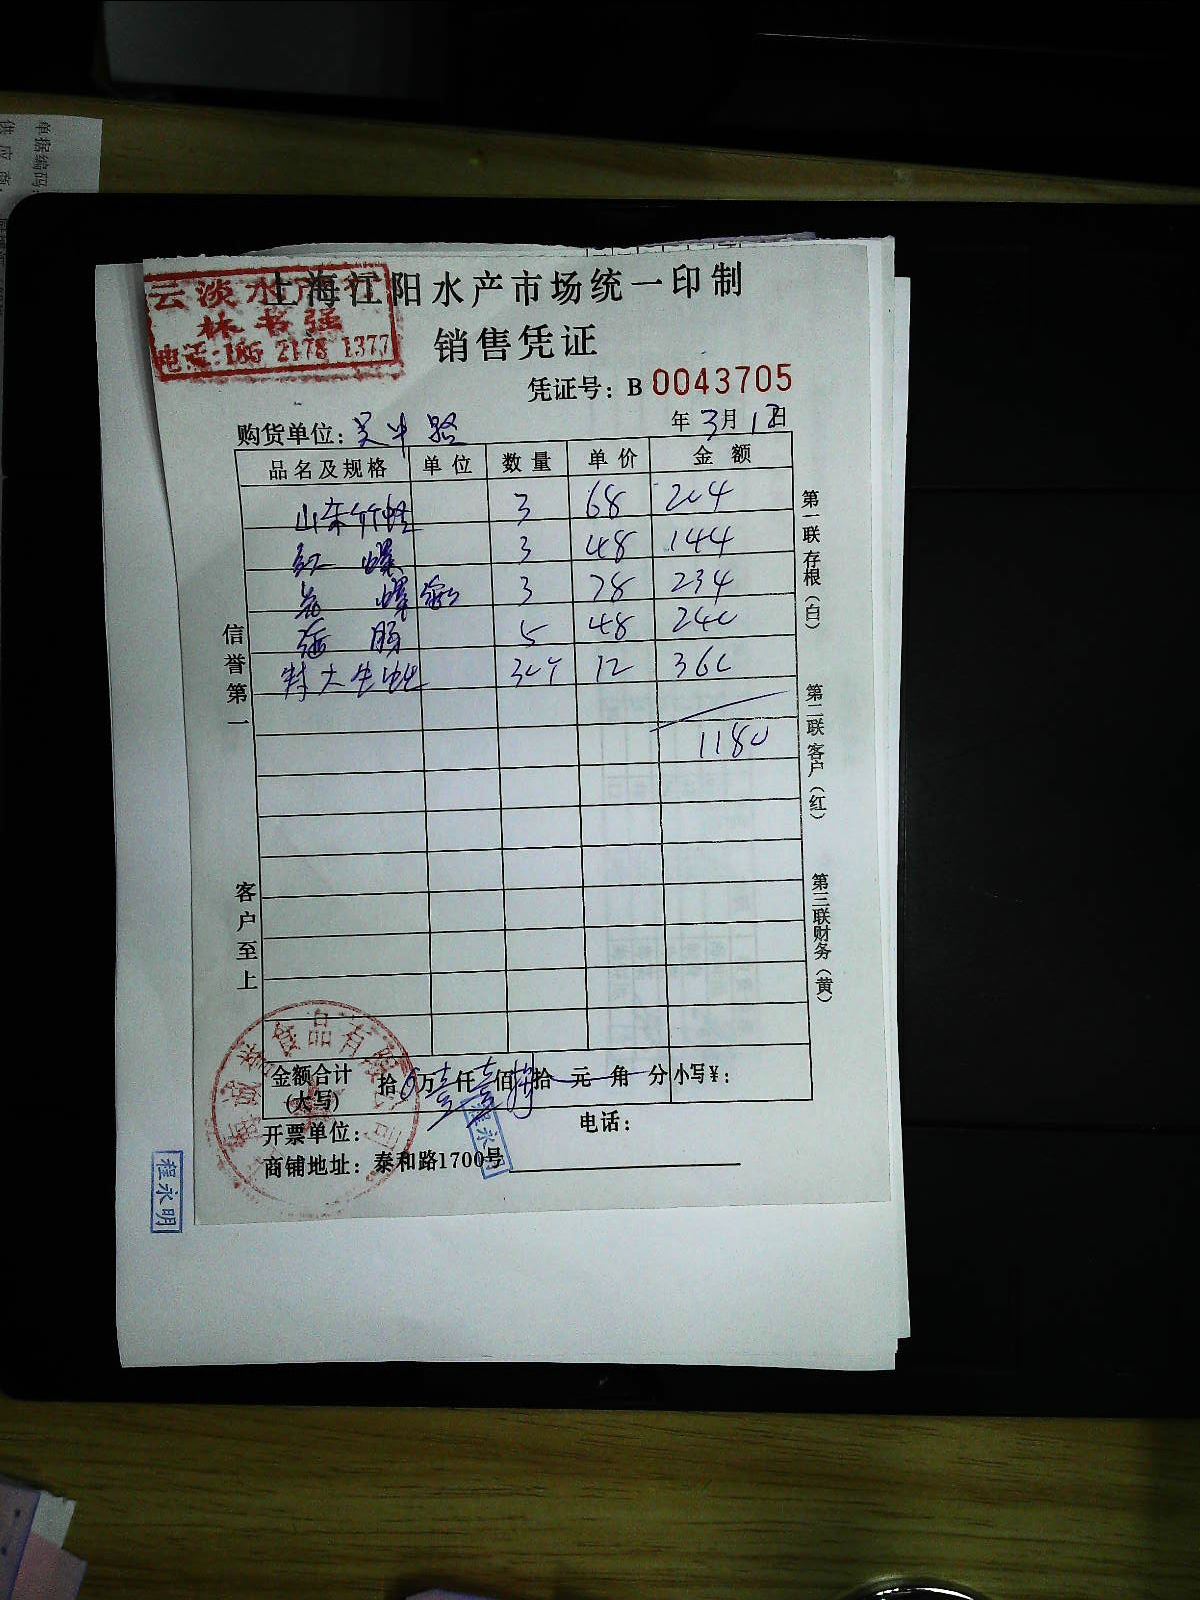 单据编码:
供应商:
云淡水产行
林书强
电话:165 2178 1377
上海江阳水产市场统一印制
销售凭证
凭证号: B 0043705
购货单位: 吴中路 年 3月 12日
品名及规格 单位 数量 单价 金额
山东竹蛏 3 68 204
红螺 3 48 144
花螺 3 78 234
海肠 5 48 240
特大生蚝 30个 12 360
1180
信誉第一
客户至上
第一联存根(白)
第二联客户(红)
第三联财务(黄)
金额合计(大写) 拾 万 壹仟 壹佰 捌拾 元 角 分 小写¥:
开票单位: 电话:
商铺地址: 泰和路1700号
食品有限公司
程永明
程永明